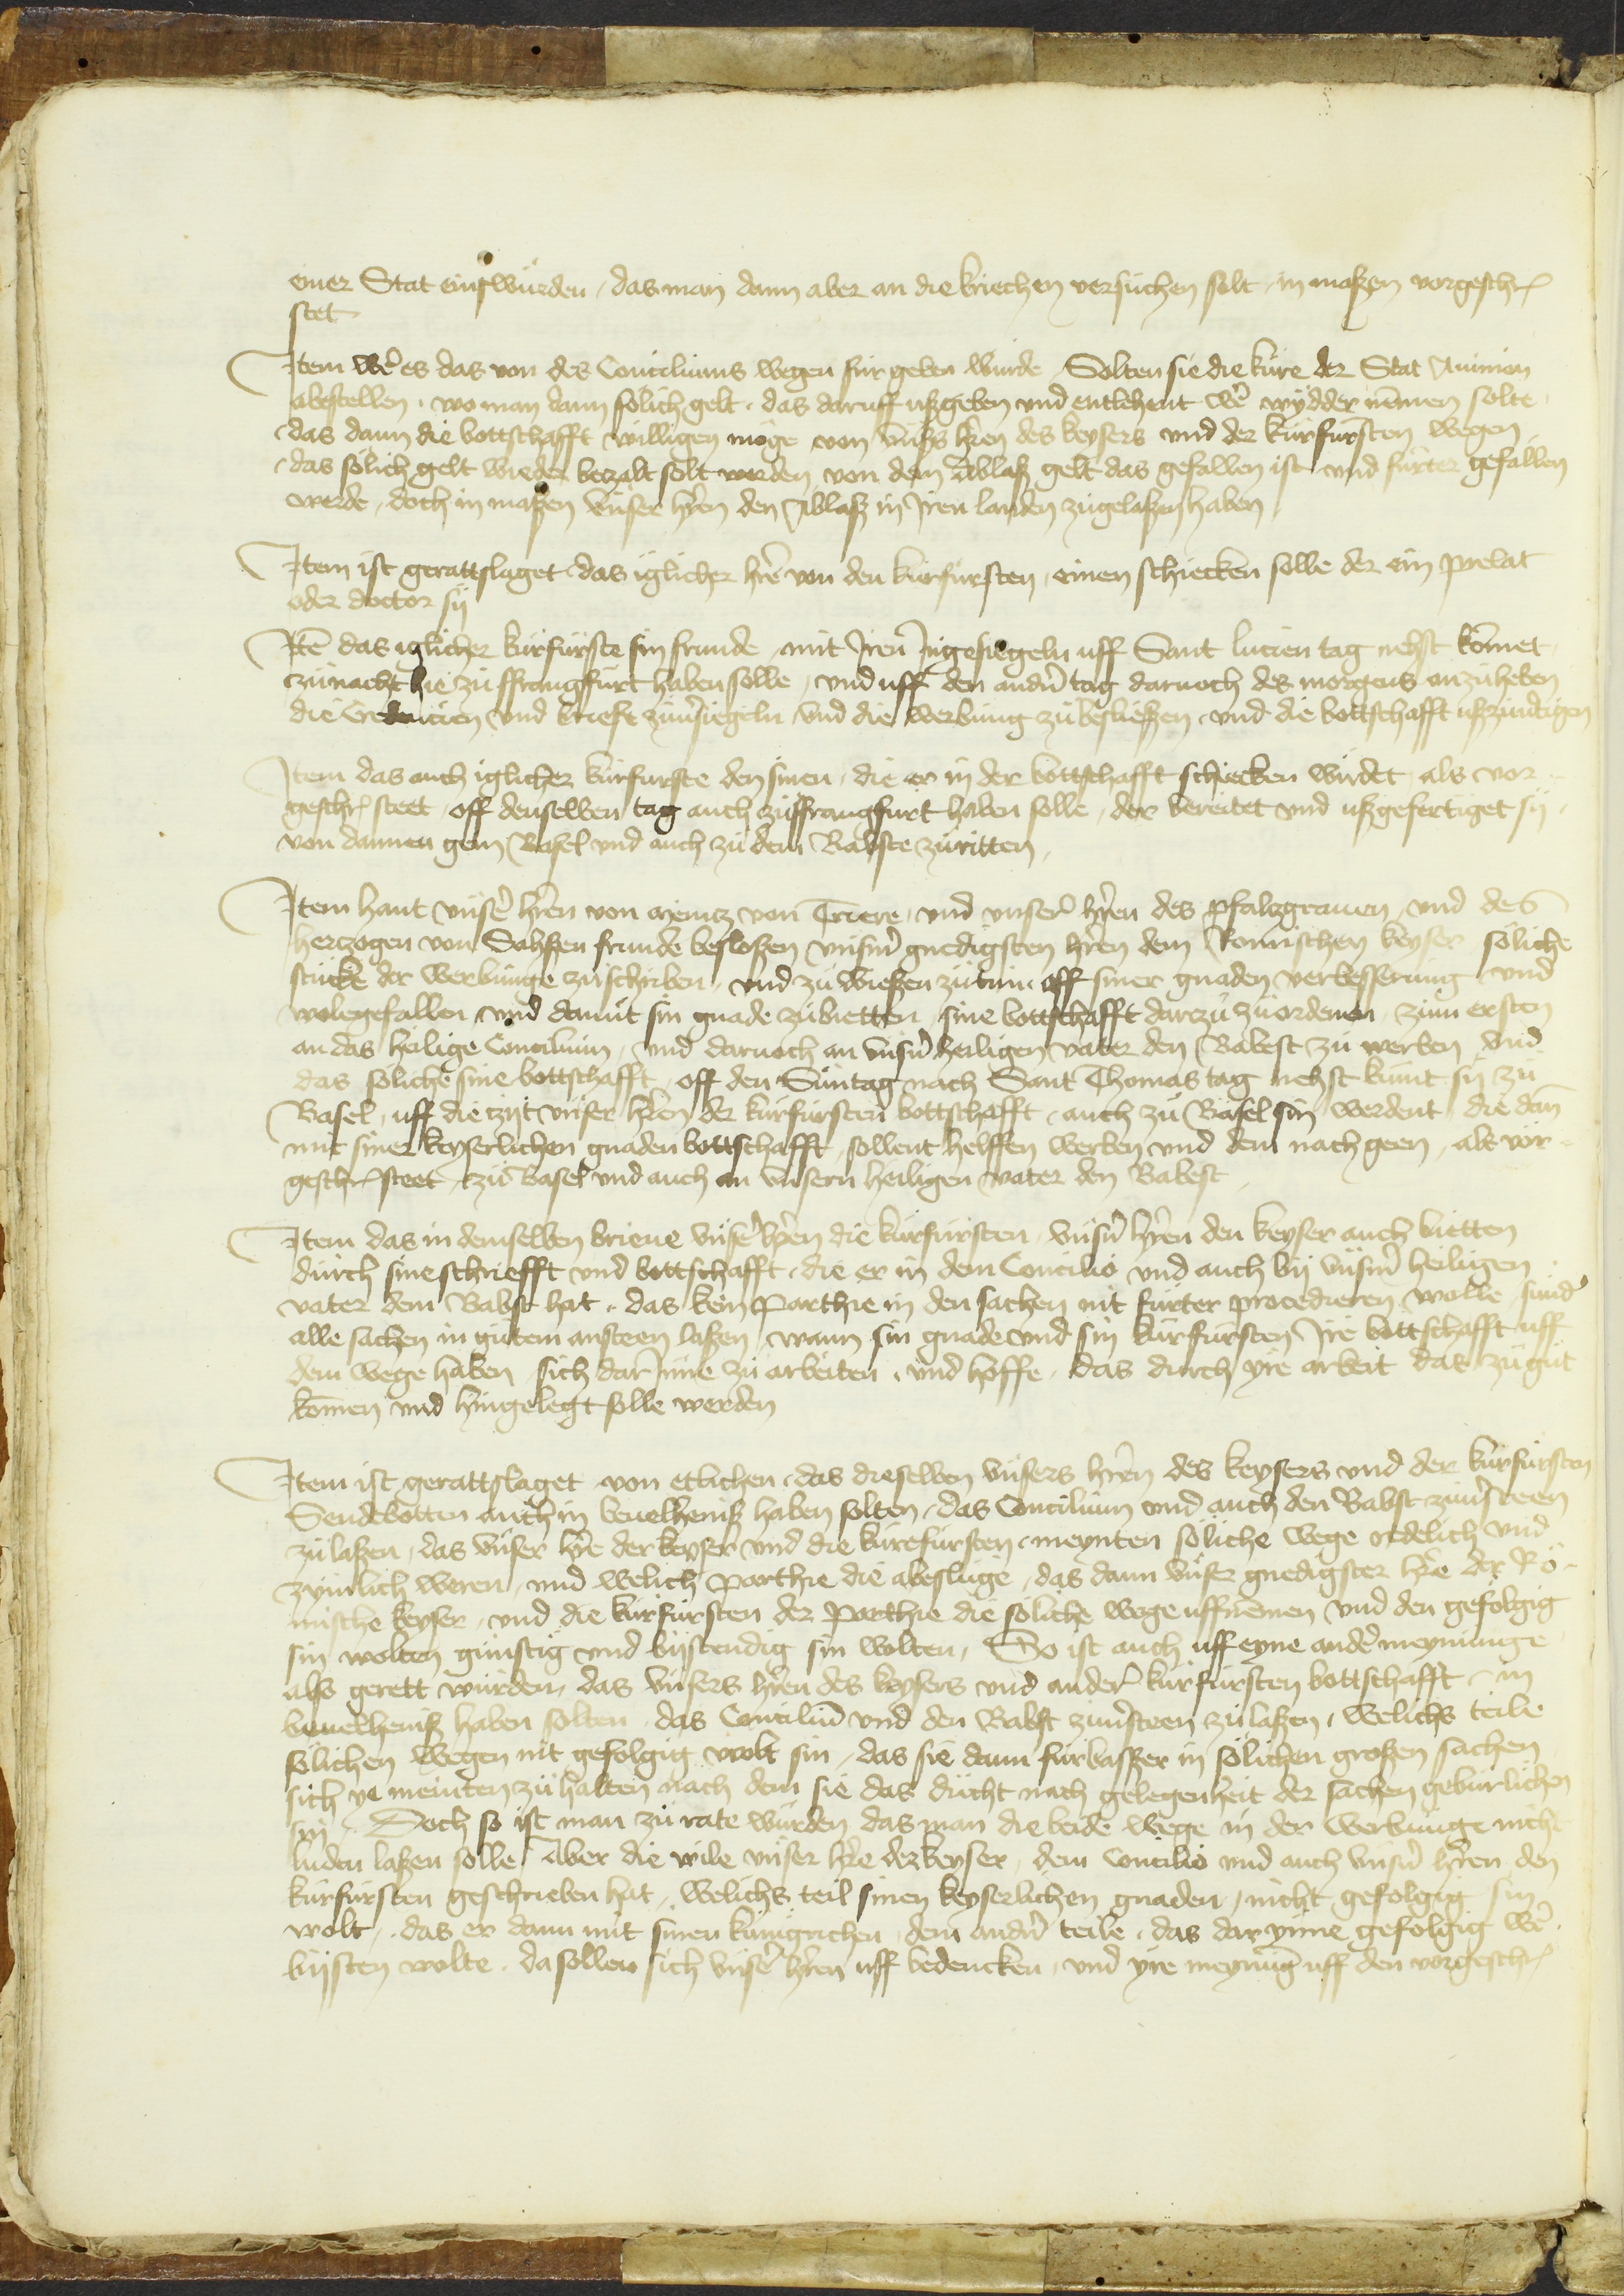 einer Stat eins wurden, das man dann aber an die kriechen versuchen solt, in maßen vorgeschr
stet
Item we͛ es das von des Conciliums wegen fur geben wurde, Solten sie die kure der Stat Auinion
abestellen, wo man dann solich gelt, das daruff ußgeben und entlehent we͛ wydder nemen solte,
das dann die bottschafft willigen moge von unß hren des keysers und der kurfursten wegen
das solich gelt wieder betzalt solt werden von dem Ablaß gelt das gefallen ist und furter gefallen
werde, doch in maßen unser hren den Ablaß in Iren landen zugelaßen haben
Item ist gerattslaget das iglicher hre von den kurfursten, einen schicken solle der ein prelat
oder doctor sij
Ite͞ das iglicher kurfurste sin frunde mit Iren Ingesiegeln uff Sant lucien tag nehst komet,
zunacht hie zu ffrangfurt haben solle, und uff den andn͛ tag darnoch des morgens anzuheben
die Credencien und brieffe zuu͛siegeln und die werbung zu besließen, und die bottschafft ußzurichten
Item das auch iglicher kurfurste den sinen, die er in der bottschafft schicken wirdet, als vor
geschr steet, off denselben tag auch zu ffrangfurt haben solle, der bereitet und ußgefertiget sij,
von dannen gein Basel und auch zu dem Babste zuritten,
Item hant unse͛ hren von Mentz von Triere, und unser͛ hren des pfaltzgrauen, und des
hertzogen von Sahßen frunde besloßen unsm͛ gnedigsten hren dem Romischen keyser soliche
stucke der werbunge zuschriben, und zu wießen zutun, off siner gnaden verbesserung und
wolegefallen und damit sin gnade zubietten, sine bottschafft dartzu zuordenen, zum ersten
an das heilige Concilium, und darnoch an unsn͛ heiligen vater den Babest zu werben und
das soliche sine bottschafft, off den Suntag nach Sant Thomas tag nehst kumt sij zu
Basel, uff die tzijt unser hren der kurfursten bottschafft, auch zu Basel sin werdent, die dan͞
mit siner keyserlichen gnaden bottschafft, sollent helffen werben und dem nach geen, als vor
geschr steet, zu Basel und auch an unsern heiligen vater den Babest
Item das in demselben brieue unse͛ hren die kurfursten, unsn͛ hren den keyser auch bietten
durch sine schriefft und bottschafft, die er in dem Concilio und auch bij unsm͛ heiligen
vater dem Babst hat, das kein Parthie in den sachen nit furter procedieren wolle, sund͛
alle sachen in gutem ansteen laßen, wann sin gnade und sin kurfursten Ire bottschafft uff
dem wege haben sich dar Inne zu arbeiten, und hoffe, das durch yre arbeit das zu gut
komen und hingelegt solle werden
Item ist gerattslaget von etlichen, das dieselben unsers hren des keysers und der kurfursten
Sendebotten auch in beuelheniß haben solten, das Concilium und auch den Babst zuu͛steen
zulaßen, das unser hre der keyser und die kurefursten, meynten soliche wege redelich und
zymlich weren, und welich parthie die abesluge, das dann unser gnedigster hre der Ro-
mische keyser, und die kurfursten der parthie die soliche wege uffnemen und den gefolgig
sin wolten gunstig und bijstendig sin wolten, So ist auch uff eyne ande͛ meynunge
also gerett wurden, das unsers hren des keysers und ander͛ kurfursten bottschafft, in
beuelheniß haben solten, das Conciliu͞ und den Babst zuu͛steen zulaßen, welichs teile
solichen wegen nit gefolgig wolt sin, das sie dann furbasser in solichen großen sachen
sich ye meinten zuhalten nach dem sie das ducht nach gelegenheit der sachen geburlichen
sin, Doch so ist man zu rate wurden das man die beide wege in der werbunge nicht
luden laßen solle, Aber die wile unser hre der keyser, dem Concilio und auch unsn͛ hren den
kurfursten geschrieben hat, welichs teil sinen keyserlichen gnaden, nicht gefolgig sin
wolt, das er dann mit sinen kunigrichen, dem andn͛ teile, das dar ynne gefolgig we͛
bijsten wolte, da sollen sich unse͛ hren uff bedencken, und yre meynu͞g uff den vorgeschr